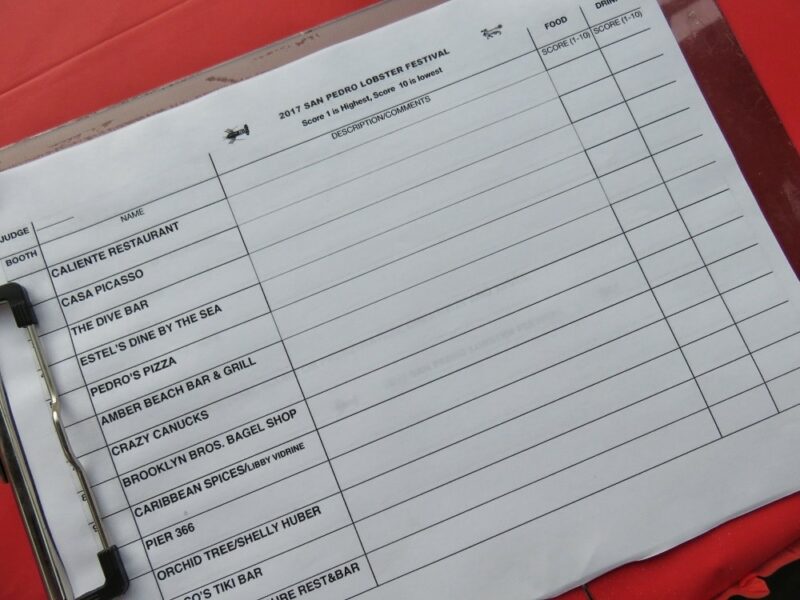 2017 SAN PEDRO LOBSTER FESTIVAL
Score 1 is Highest, Score 10 is lowest
FOOD
JUDGE
BOOTH
NAME
DESCRIPTION/COMMENTS
SCORE (1-10)
SCORE (1-10)
CALIENTE RESTAURANT
CASA PICASSO
THE DIVE BAR
ESTEL'S DINE BY THE SEA
PEDRO'S PIZZA
AMBER BEACH BAR & GRILL
CRAZY CANUCKS
BROOKLYN BROS. BAGEL SHOP
CARIBBEAN SPICES/LIBBY VIDRINE
PIER 366
ORCHID TREE/SHELLY HUBER
TIKI BAR
REST&BAR